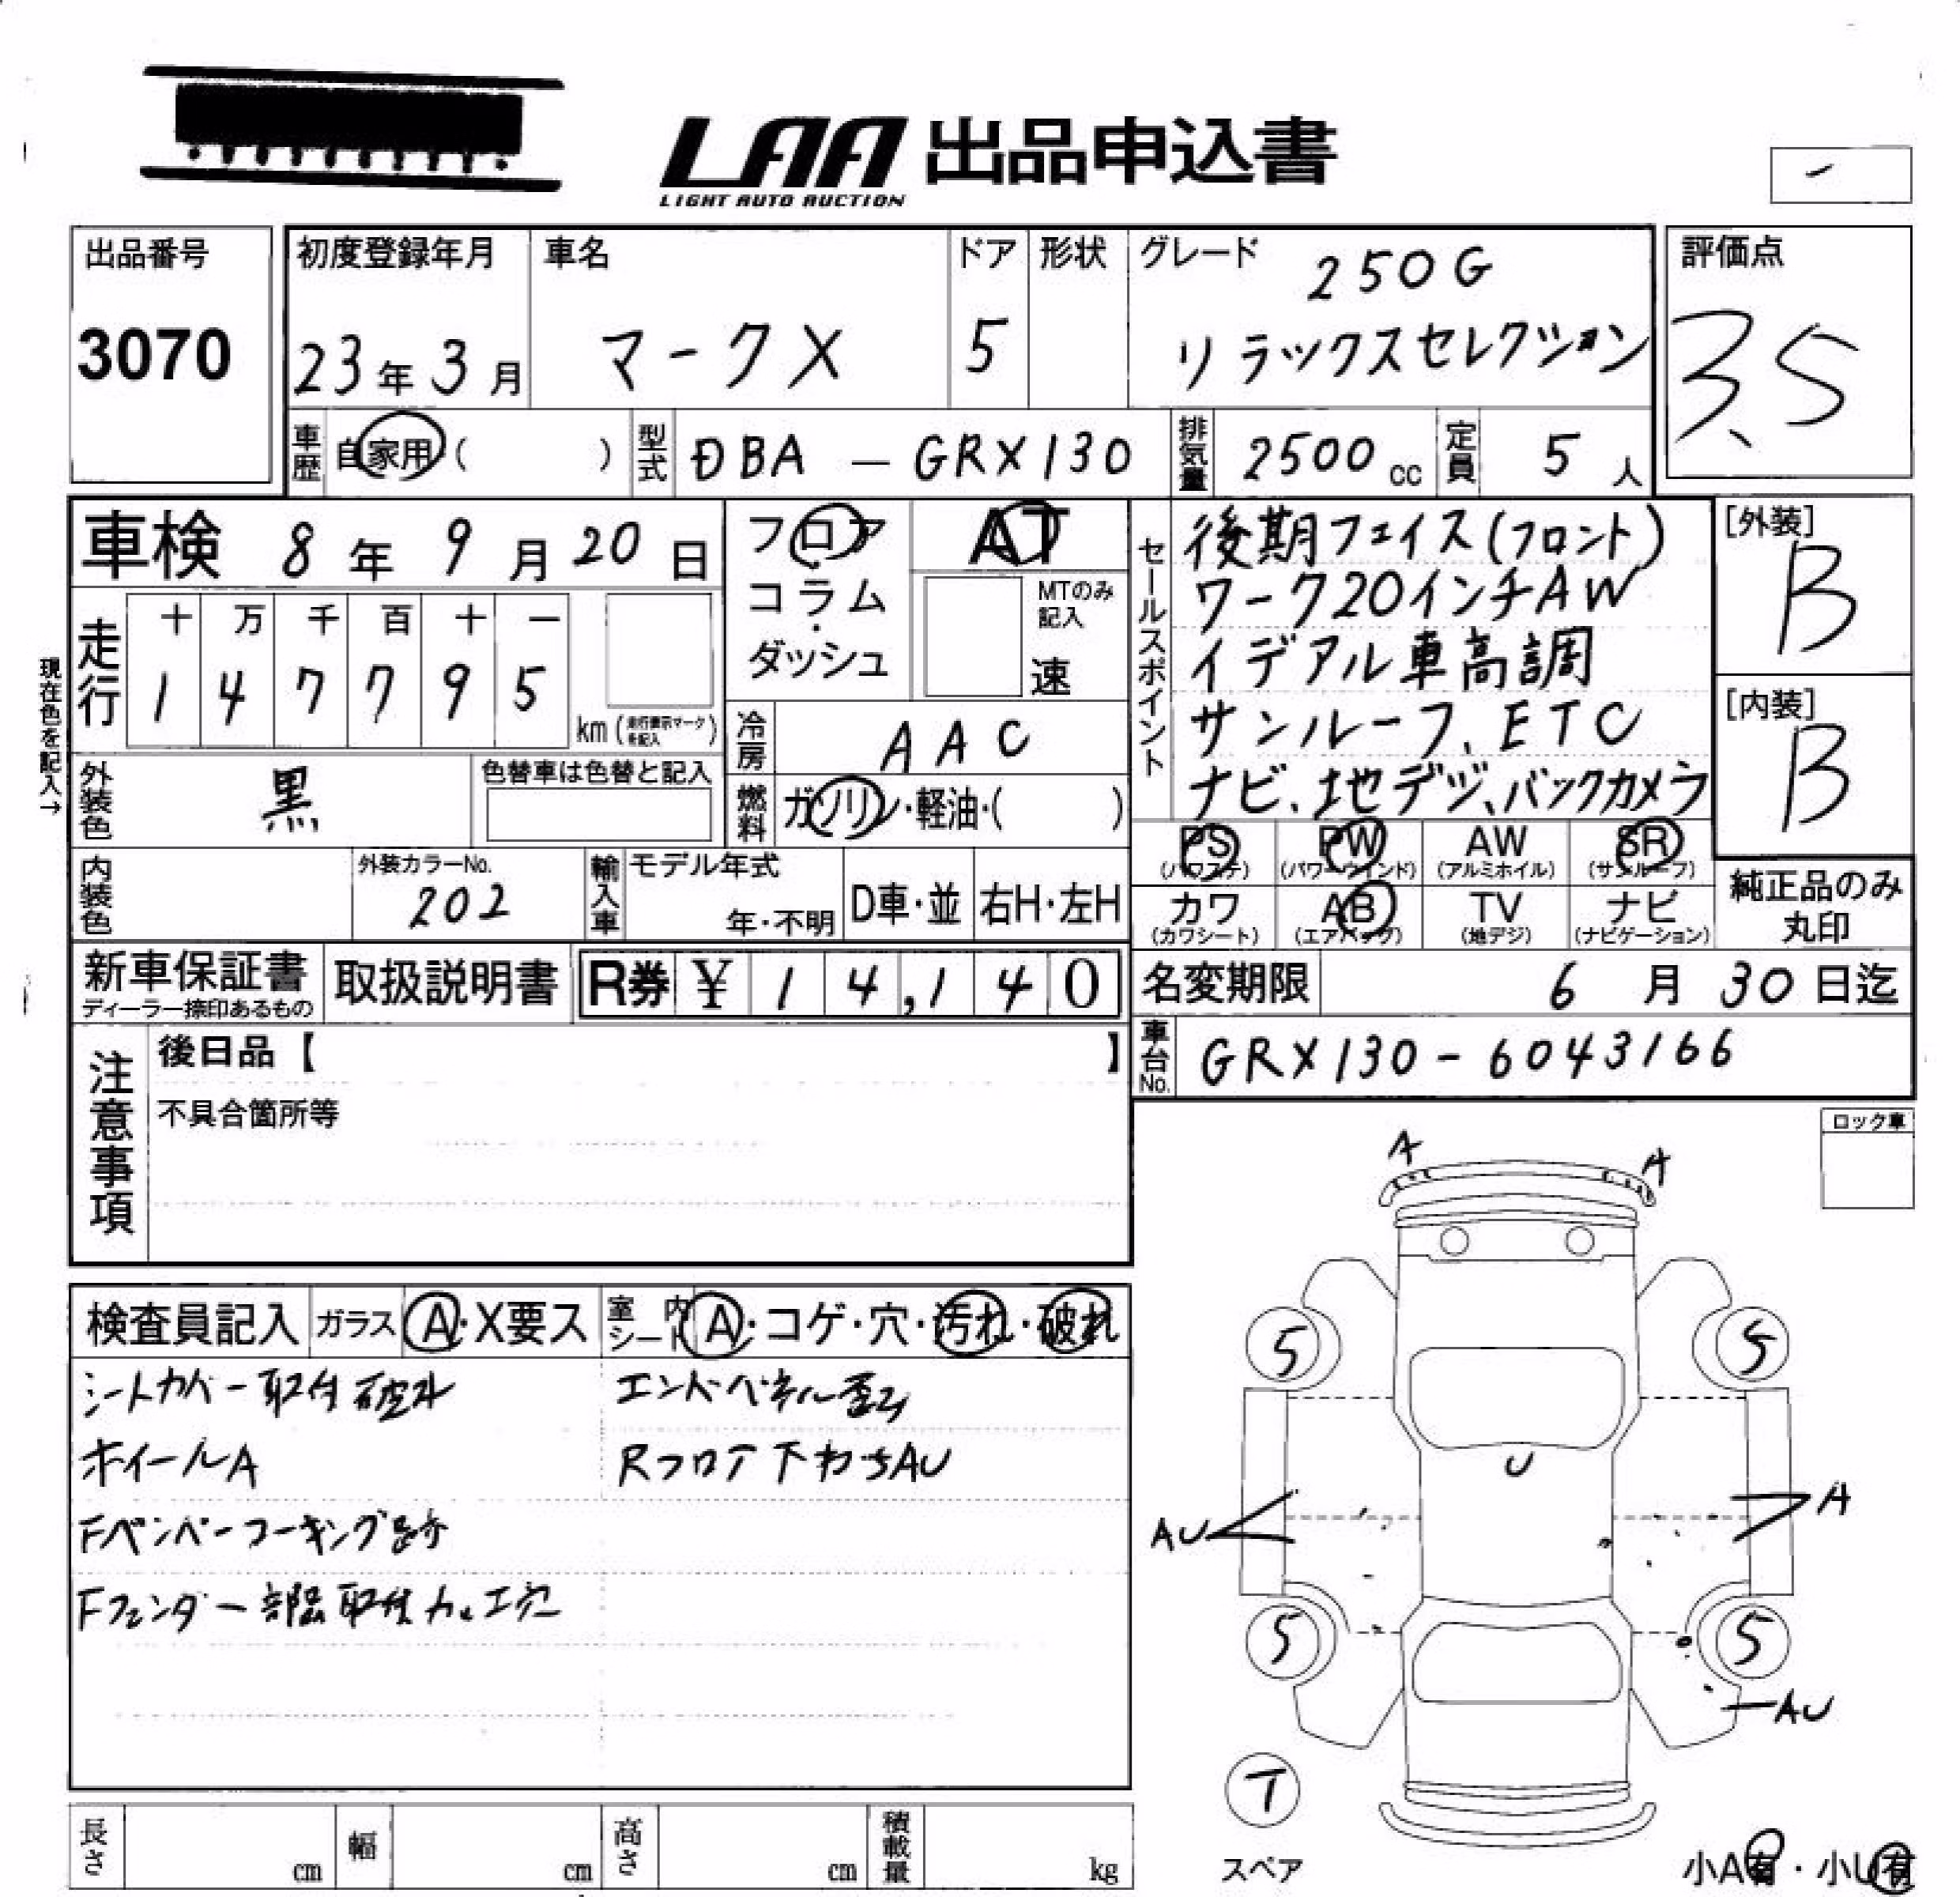 LAA 出品申込書
LIGHT AUTO AUCTION
出品番号
3070
初度登録年月
23年3月
車名
マークX
ドア
5
形状
グレード
250G
リラックスセレクション
評価点
3.5
車歴
自家用( )
型式
DBA - GRX130
排気量
2500cc
定員
5人
車検 8年9月20日
フロア・コラム・ダッシュ
AT
MTのみ記入
速
セールスポイント
後期フェイス(フロント)
ワーク20インチAW
イデアル車高調
サンルーフ、ETC
ナビ、地デジ、バックカメラ
[外装]
B
[内装]
B
現在色を記入→
走行
十 万 千 百 十 一
1 4 7 7 9 5
km(走行表示マークを記入)
冷房
AAC
外装色
黒
色替車は色替と記入
燃料
ガソリン・軽油・( )
PS
(パワステ)
PW
(パワーウインド)
AW
(アルミホイル)
SR
(サンルーフ)
カワ
(カワシート)
AB
(エアバッグ)
TV
(地デジ)
ナビ
(ナビゲーション)
純正品のみ
丸印
内装色
外装カラーNo.
202
輸入車
モデル年式
年・不明
D車・並
右H・左H
新車保証書
ディーラー捺印あるもの
取扱説明書
R券 ¥ 14,140
名変期限 6月30日迄
車台No.
GRX130-6043166
注意事項
後日品【 】
不具合箇所等
ロック車
検査員記入
ガラス A・X要ス
室内シート A・コゲ・穴・汚れ・破れ
シートカバー取付 破れ
エンドパネル歪み
ホイールA
Rフロア下まわりAU
Fバンパーコーキング跡
Fフェンダー部品取付加工穴
A
A
5
5
U
AU
A
5
5
AU
T
スペア
小A有・小U有
長さ cm
幅 cm
高さ cm
積載量 kg